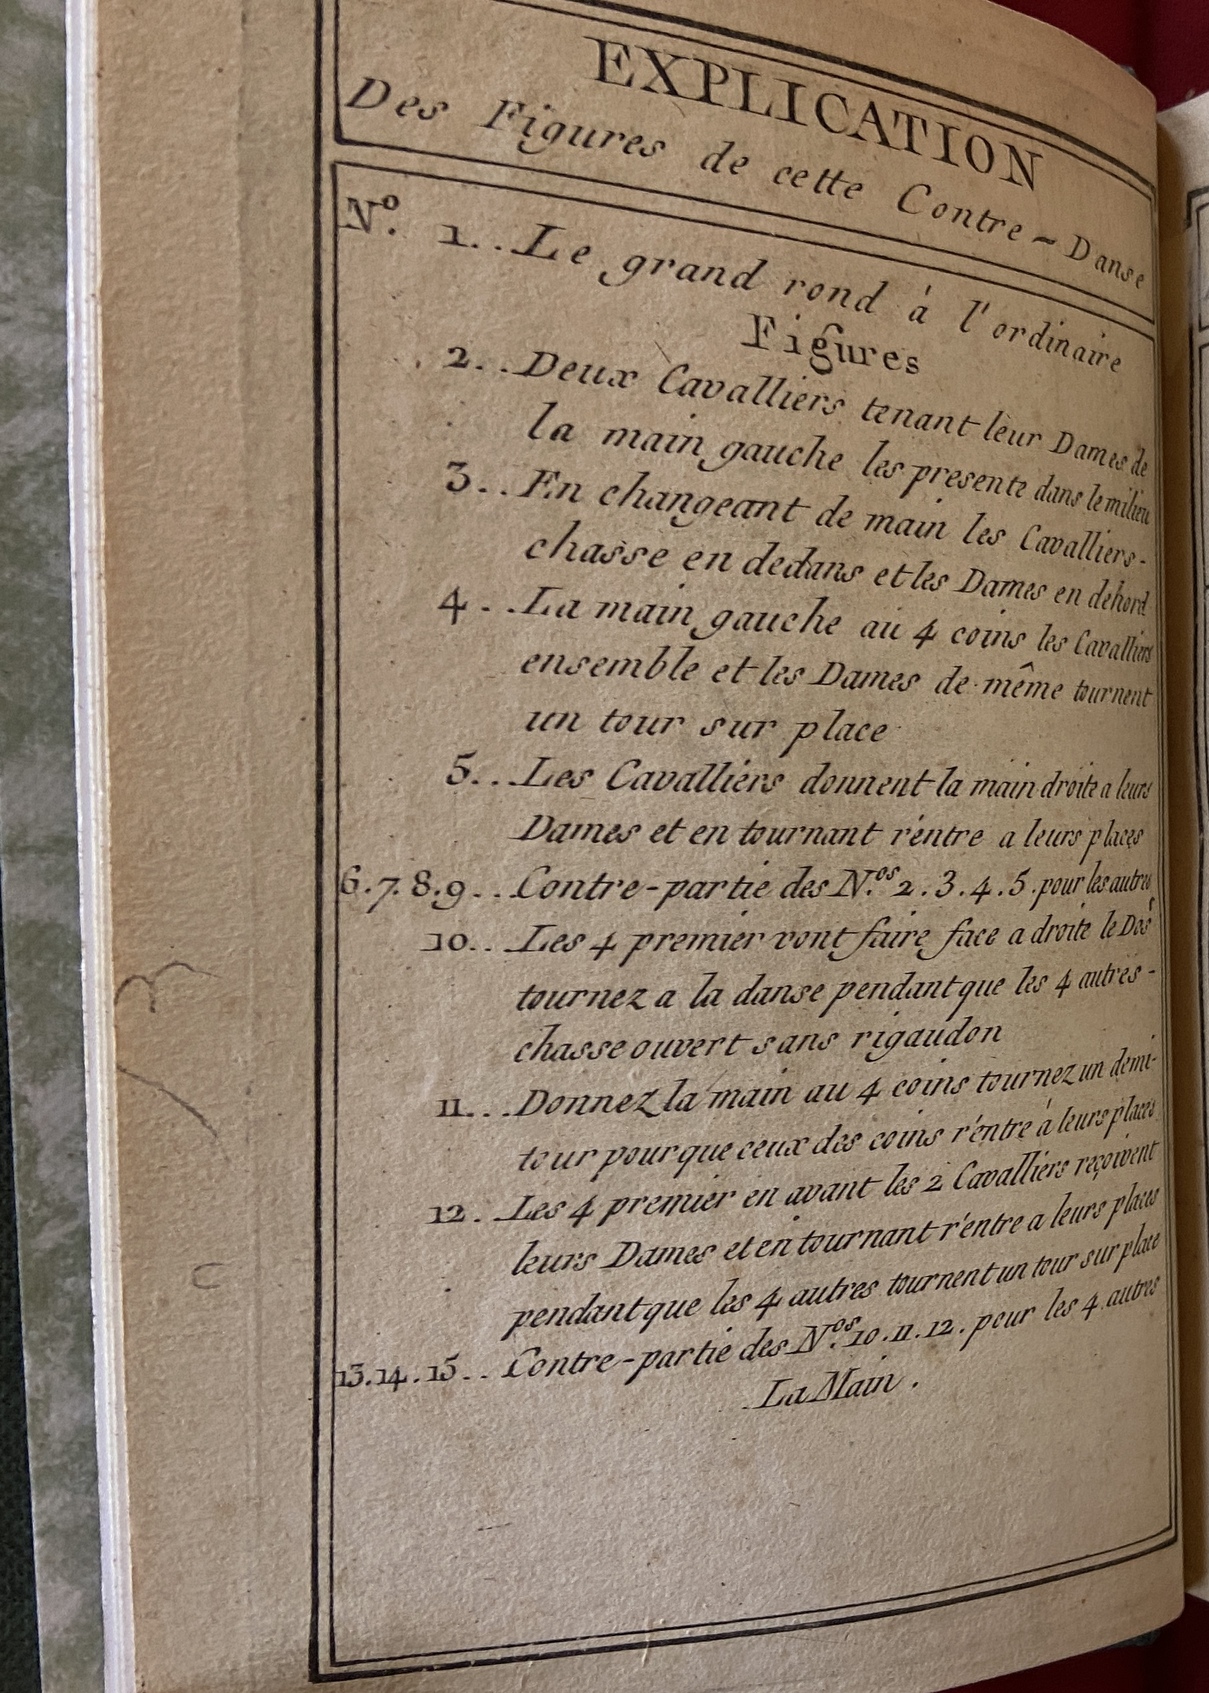 EXPLICATION
Des Figures de cette Contre-Danse
N.º 1.. Le grand rond à l'ordinaire
Figures
2.. Deux Cavalliers tenant leur Dames de
la main gauche les presente dans le milieu
3.. En changeant de main les Cavalliers-
chasse en dedans et les Dames en dehord
4.. La main gauche au 4 coins les Cavalliers
ensemble et les Dames de même tournent
un tour sur place
5... Les Cavalliers donnent la main droite a leurs
Dames et en tournant r'entre a leurs places
6.7.8.9.. Contre-partie des N.os 2.3.4.5. pour les autres
10.. Les 4 premier vont faire face a droite le Dos
tournez a la danse pendant que les 4 autres-
chasse ouvert sans rigaudon
11... Donnez la main au 4 coins tournez un demi-
tour pour que ceux des coins r'entre à leurs places
12.. Les 4 premier en avant les 2 Cavalliers reçoivent
leurs Dames et en tournant r'entre a leurs places
pendant que les 4 autres tournent un tour sur place
13.14.15.. Contre-partie des N.os 10.11.12. pour les 4 autres
La Main.